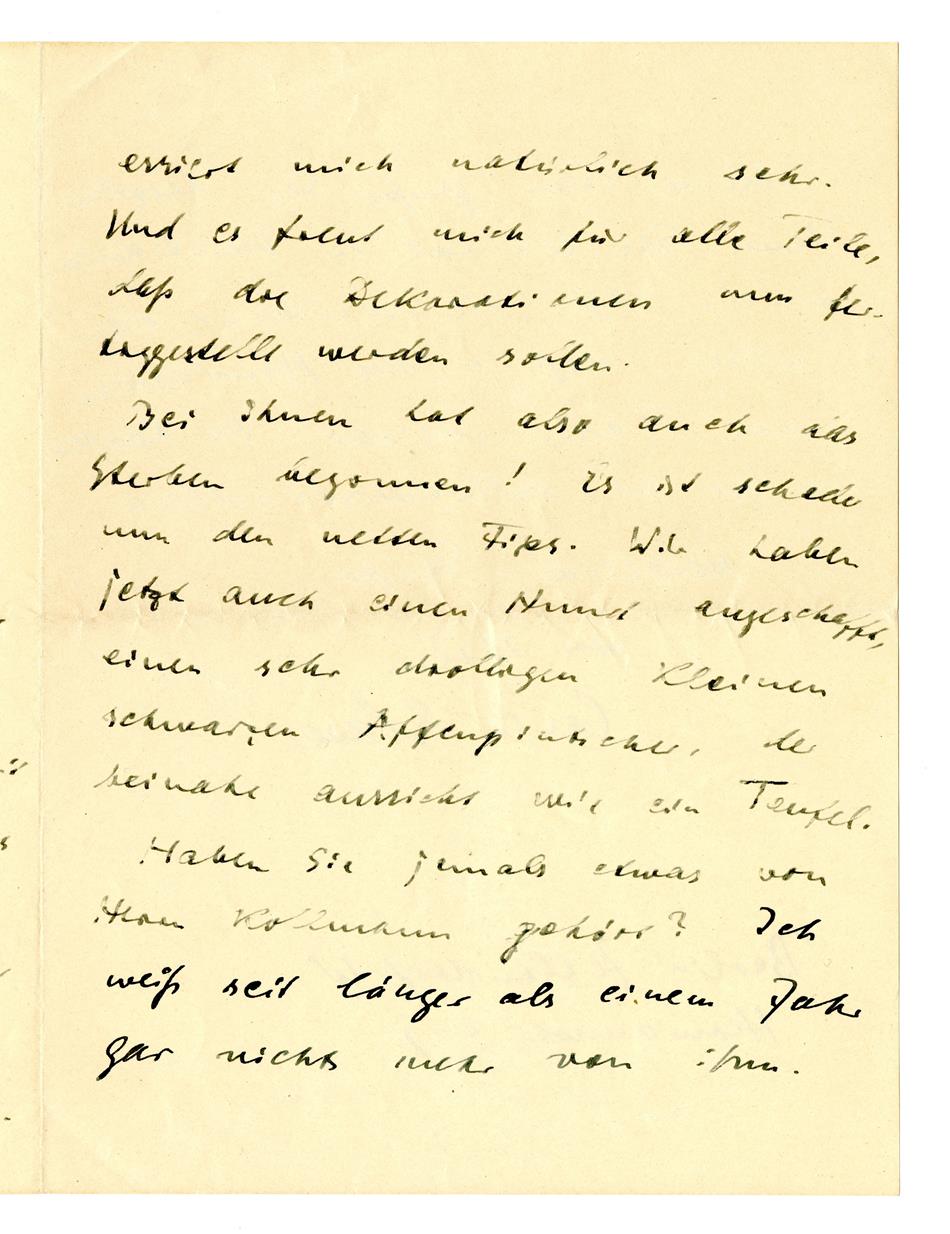 erregt mich natürlich sehr.
Und es freut mich für alle Teile,
daß die Dekorationen nun fer-
tiggestellt werden sollen.
Bei Ihnen hat also auch das
Sterben begonnen! Es ist schade
um den netten Fips. Wir haben
jetzt auch einen Hund angeschafft,
einen sehr drolligen kleinen
schwarzen Affenpintscher, der
beinahe aussieht wie ein Teufel.
Haben Sie jemals etwas von
Herrn gehört? Ich
weiß seit länger als einem Jahr
gar nichts mehr von ihm.